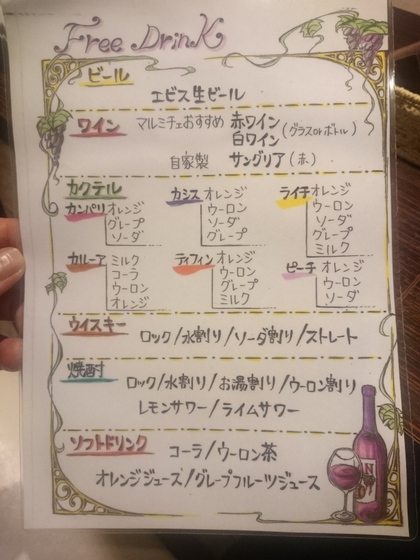 Free Drink
ビール
エビス生ビール
ワイン マルミチェおすすめ 赤ワイン
白ワイン (グラスorボトル)
自家製 サングリア(赤)
カクテル
カンパリ オレンジ
グレープ
ソーダ
カシス オレンジ
ウーロン
ソーダ
グレープ
ライチ オレンジ
ウーロン
ソーダ
グレープ
ミルク
カルーア ミルク
コーラ
ウーロン
オレンジ
ティフィン オレンジ
ウーロン
グレープ
ミルク
ピーチ オレンジ
ウーロン
ソーダ
ウイスキー
ロック/水割り/ソーダ割り/ストレート
焼酎
ロック/水割り/お湯割り/ウーロン割り
レモンサワー/ライムサワー
ソフトドリンク コーラ/ウーロン茶
オレンジジュース/グレープフルーツジュース